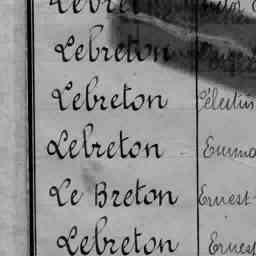 Lebreton
Lebreton
Lebreton Célestin
Lebreton - Emma
Le Breton Ernest
Lebreton Ernest